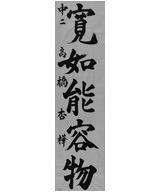 寛如能容物
中二 高橋杏樺